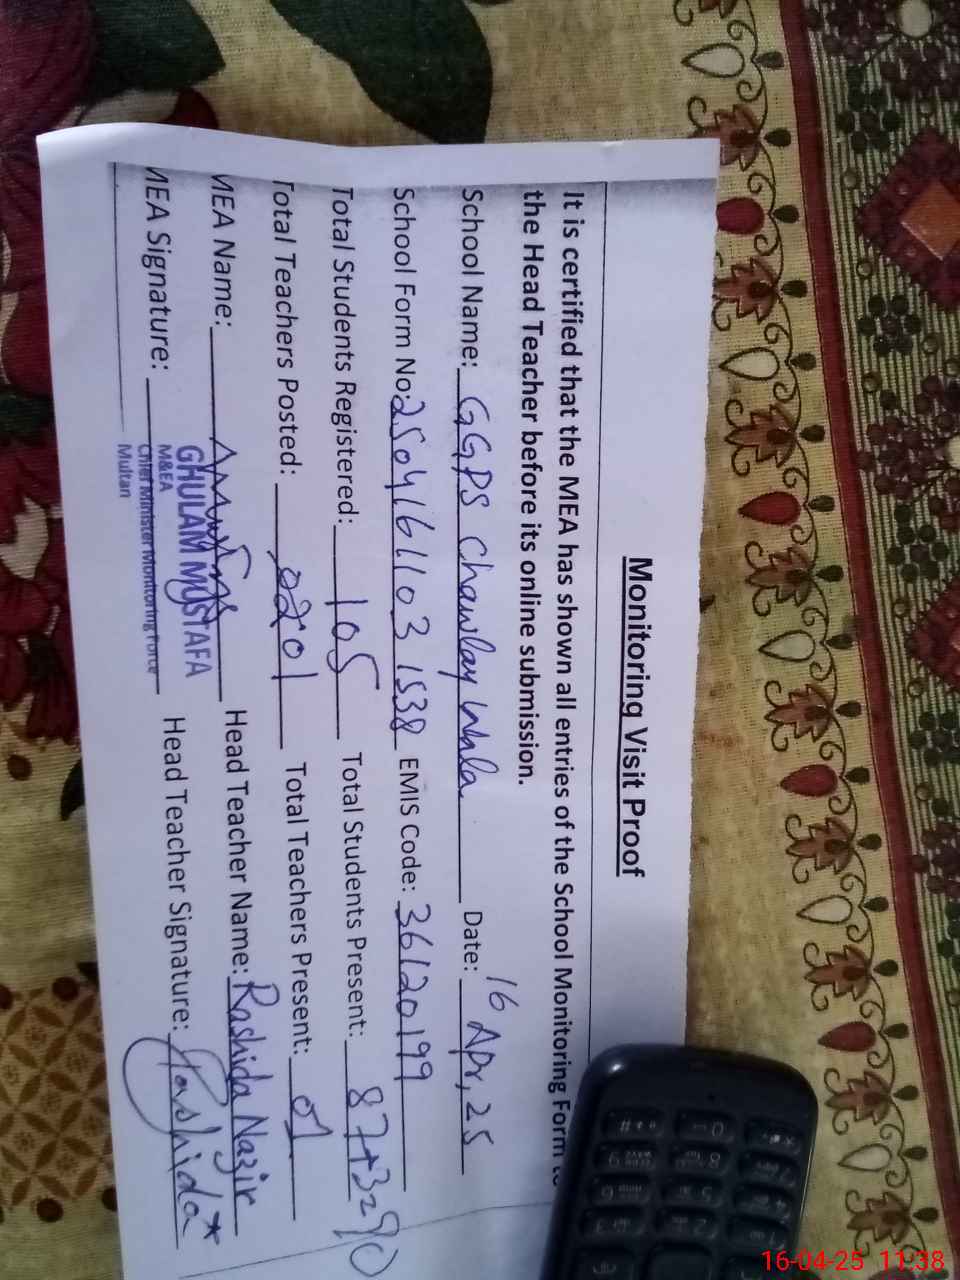 Monitoring Visit Proof
It is certified that the MEA has shown all entries of the School Monitoring Form to
the Head Teacher before its online submission.
School Name: GGPS Chawlay Wala Date: 16 Apr, 25
School Form No: 25041611031538 EMIS Code: 36120199
Total Students Registered: 105 Total Students Present: 87+3=90
Total Teachers Posted: 01 Total Teachers Present: 01
MEA Name: Head Teacher Name: Rashida Nazir
GHULAM MUSTAFA
MEA Signature: Head Teacher Signature: Rashida
M&EA
Chief Minister Monitoring Force
Multan
16-04-25 11:38